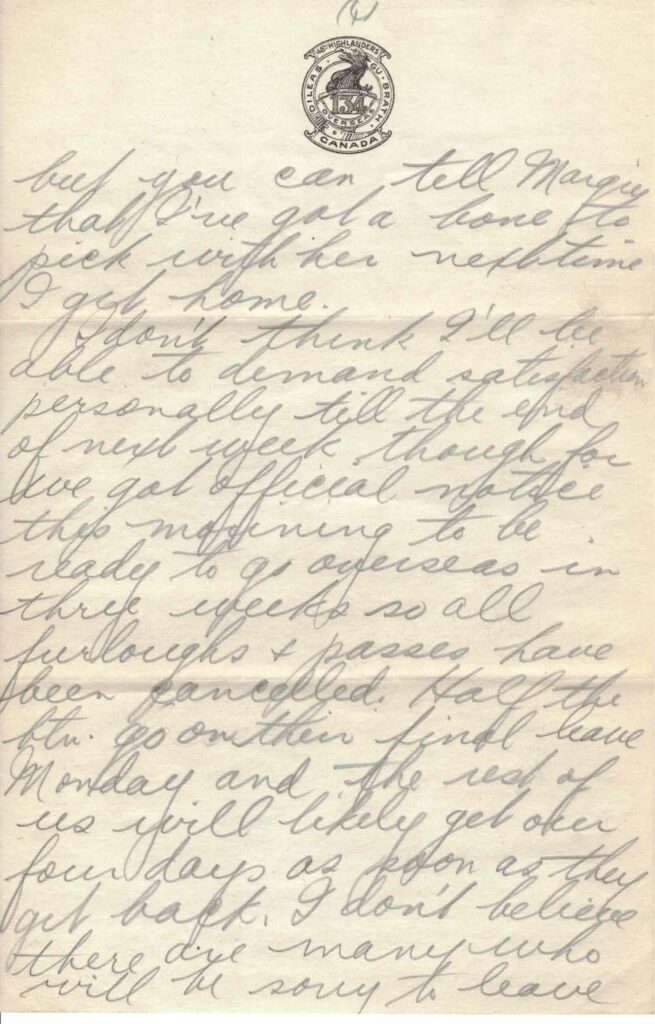 48TH HIGHLANDERS
DILEAS GU BRATH
134
OVERSEAS
CANADA
but you can tell Margie
that I've got a bone to
pick with her next time
I get home.
I don't think I'll be
able to demand satisfaction
personally till the end
of next week though for
we got official notice
this morning to be
ready to go overseas in
three weeks so all
furloughs + passes have
been cancelled. Half the
btn. go on their final leave
Monday and the rest of
us will likely get our
four days as soon as they
get back. I don't believe
there are many who
will be sorry to leave